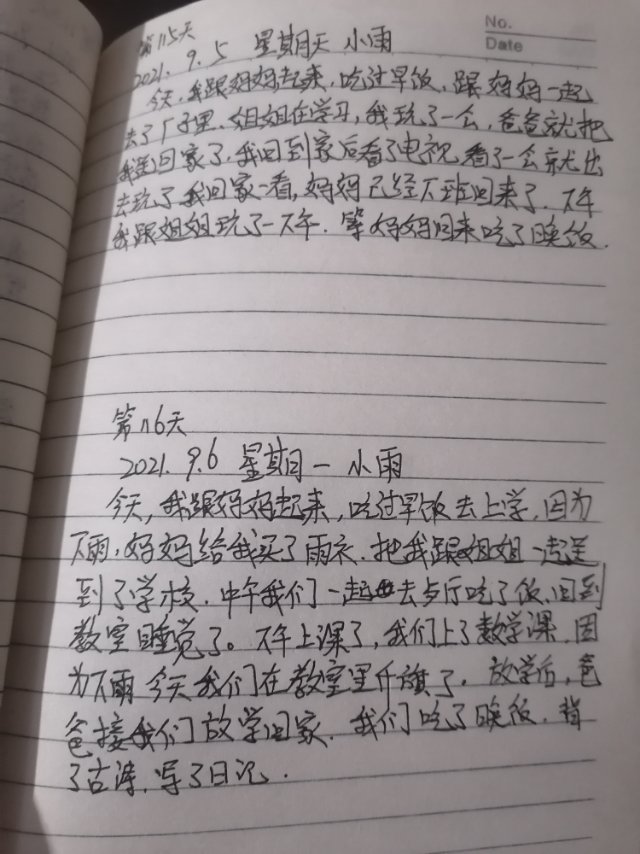 No.
Date
第115天
2021. 9. 5 星期天 小雨
今天,我跟妈妈起来,吃过早饭,跟妈妈一起
去了厂子里.姐姐在学习,我玩了一会,爸爸就把
我送回家了,我回到家后看了电视,看了一会就出
去玩了我回家一看,妈妈已经下班回来了.下午
我跟姐姐玩了一下午.等妈妈回来吃了晚饭.
第116天
2021. 9.6 星期一 小雨
今天,我跟妈妈起来,吃过早饭去上学,因为
下雨,妈妈给我买了雨衣.把我跟姐姐一起送
到了学校.中午我们一起去歺厅吃了饭,回到
教室睡觉了。下午上课了,我们上了数学课.因
为下雨 今天我们在教室里升旗了。放学后,爸
爸接我们放学回家.我们吃了晚饭.背
了古诗.写了日记.